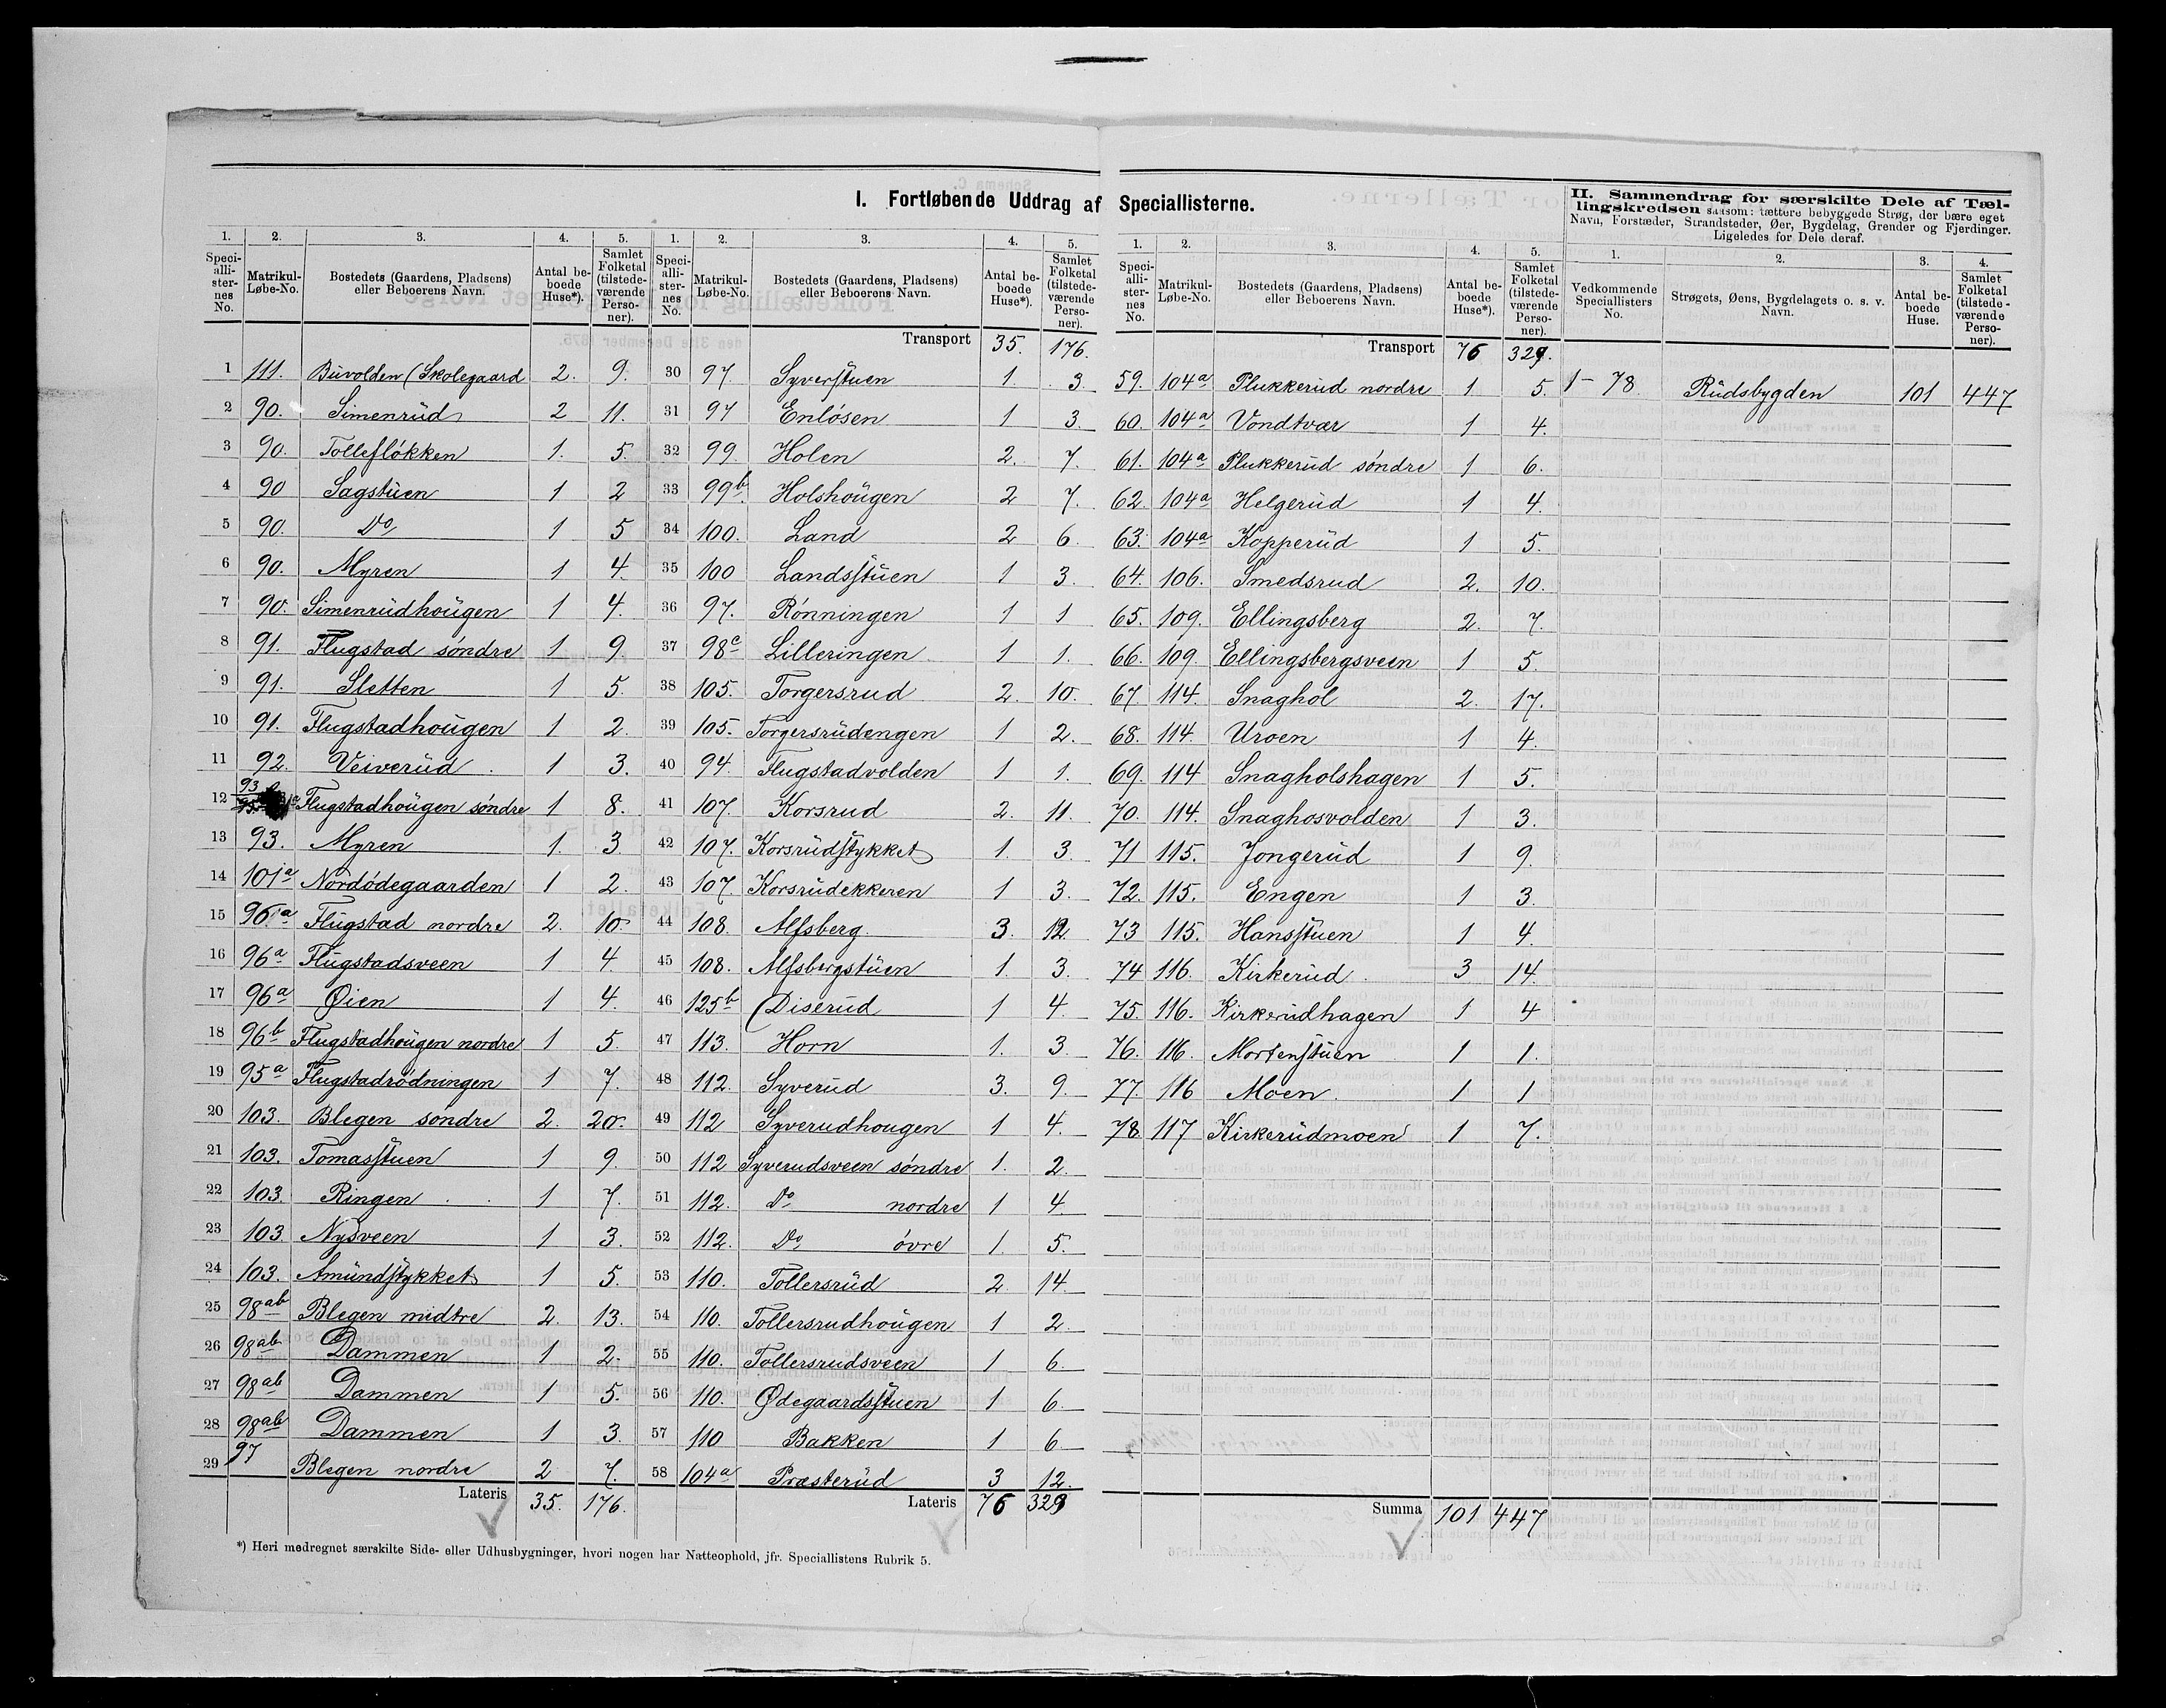 I. Fortløbende Uddrag af Speciallisterne.
1. 2. 3. 4. 5.
Speciallisternes No. Matrikul-Løbe-No. Bostedets (Gaardens, Pladsens) eller Beboerens Navn. Antal beboede Huse*). Samlet Folketal (tilstedeværende Personer).
1 111. Büvolden (Skolegaard 2. 9.
2 90. Simenrüd 2 11.
3 90. Tollefløkken 1. 5.
4 90 Sagstüen 1 2
5 90. Do 1 5
6 90. Myren 1 4.
7 90. Simenrüdhoügen 1 4.
8 91. Flugstad søndre 1 9.
9 91. Sletten 1 5.
10 91. Flugstadhoügen 1 2.
11 92. Veiverüd 1 3.
12 93 95 Flugstadhoügen søndre 1 8.
13 93. Myren 1. 3
14 101a Nordødegaarden 1 2.
15 96a Flügstad nordre 2. 10
16 96a Flügstadsveen 1 4.
17 96a Øien 1 4.
18 96b Flugstadhoügen nordre 1 5.
19 95a Flugstadrødningen 1 7.
20 103. Blegen søndre 2. 20.
21 103. Tomasstuen 1 9.
22 103. Ringen 1 7.
23 103. Nysveen 1 3.
24 103. Amündstykket 1 5.
25 98ab Blegen midtre 2. 13.
26 98ab Dammen 1 2.
27 98ab Dammen 1 5.
28 98ab Dammen 1 3.
29 97 Blegen nordre 2 7.
Lateris 35. 176.
*) Heri medregnet særskilte Side- eller Udhusbygninger, hvori nogen har Natteophold, jfr. Speciallistens Rubrik 5.
1. 2. 3. 4. 5.
Speciallisternes No. Matrikul-Løbe-No. Bostedets (Gaardens, Pladsens) eller Beboerens Navn. Antal beboede Huse*). Samlet Folketal (tilstedeværende Personer).
Transport 35. 176.
30 97. Syverstuen 1. 3.
31 97 Enløsen 1 3.
32 99. Holen 2. 7.
33 99b. Holshoügen 2 7.
34 100. Land 2 6.
35 100 Landsstüen 1 3.
36 97. Rønningen 1 1
37 98c Lilleringen 1 1.
38 105. Torgersrud 2. 10.
39 105. Torgersrüdengen 1 2.
40 94. Flugstadvolden 1 1.
41 107. Korsrud 2. 11.
42 107. Korsrüdstykket 1. 3.
43 107. Korsrüdekkeren 1 3.
44 108. Alfsberg 3. 12.
45 108. Alfsbergstüen 1. 3.
46 125b Diserüd 1 4.
47 113. Horn 1. 3.
48 112. Syverüd 3. 9.
49 112 Syverudhougen 1 4.
50 112 Syverudsveen søndre 1. 2.
51 112. Do nordre 1 4.
52 112. Do øvre 1. 5.
53 110. Tollersrüd 2 14.
54 110. Tollersrudhoügen 1 2.
55 110. Tollersrudsveen 1 6.
56 110. Ødegaardsstüen 1 6.
57 110 Bakken 1 6
58 104a Præsterüd 3 12.
Lateris 76 329
1. 2. 3. 4. 5.
Speciallisternes No. Matrikul-Løbe-No. Bostedets (Gaardens, Pladsens) eller Beboerens Navn. Antal beboede Huse*). Samlet Folketal (tilstedeværende Personer).
Transport 76 329.
59. 104a Plukkerüd nordre 1 5.
60. 104a Vondtvær 1 4.
61. 104a Plukkerüd søndre 1 6.
62. 104a Helgerüd 1 4.
63. 104a Kopperüd 1 5.
64. 106. Smedsrud 2. 10.
65. 109. Ellingsberg 2. 7.
66. 109. Ellingsbergsveen 1 5.
67. 114. Snaghol 2. 17.
68. 114. Uroen 1 4.
69. 114 Snagholshagen 1 5.
70. 114. Snaghosvolden 1 3.
71 115. Jongerüd 1 9.
72. 115. Engen 1 3.
73 115. Hansstüen 1 4.
74 116. Kirkerüd 3 14.
75. 116. Kirkerüdhagen 1 4
76. 116. Mortenstüen 1 1.
77. 116 Moen 1 1
78. 117 Kirkerüdmoen 1 7.
Summa 101 447
II. Sammendrag for særskilte Dele af Tællingskredsen saasom: tættere bebyggede Strøg, der bære eget
Navn, Forstæder, Strandsteder, Øer, Bygdelag, Grender og Fjerdinger.
Ligeledes for Dele deraf.
1. 2. 3. 4.
Vedkommende Speciallisters No. Strøgets, Øens, Bygdelagets o. s. v. Navn. Antal beboede Huse. Samlet Folketal (tilstedeværende Personer).
1 - 78. Rüdsbygden 101 447